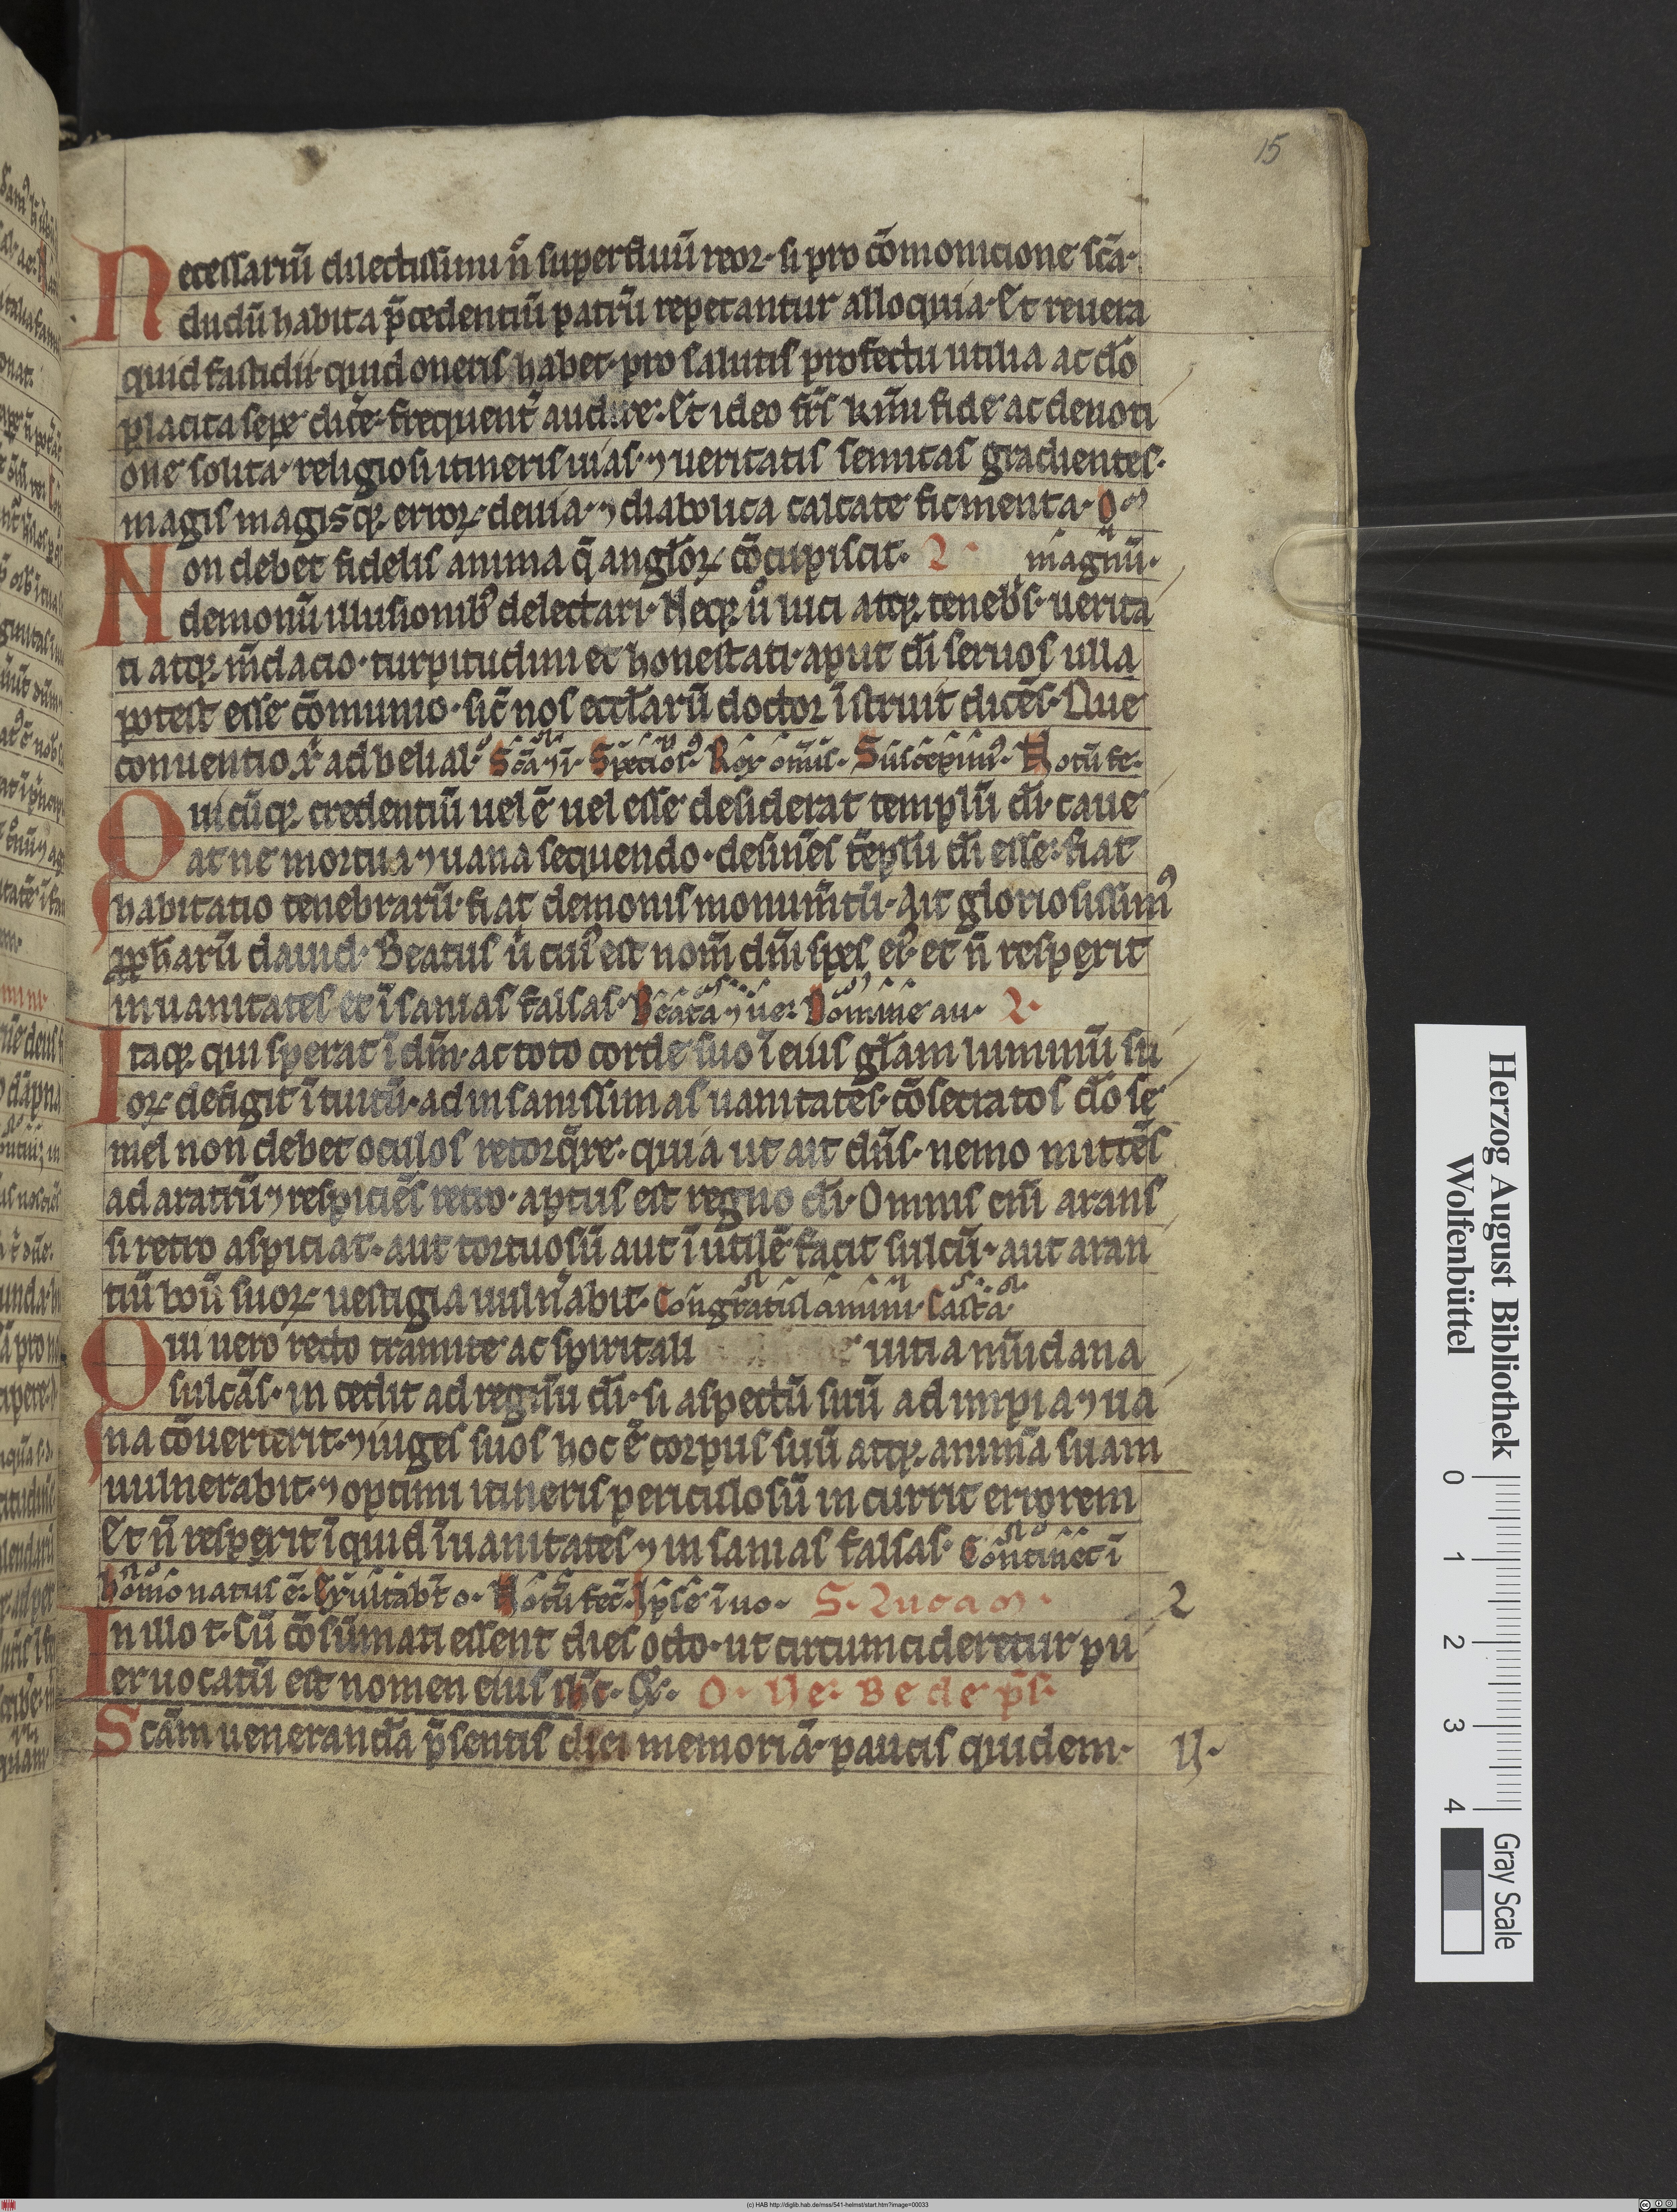 15
Necessariū dilectissimi n̄ superfluū reor· si pro cōmonicione sc̄a·
dudū habita p̄cedentiū patrū repetantur alloquia· Et reuera
quid fastidii· quid oneris habet· pro salutis profectu utilia ac do
placita sepe dic̄e· frequent̄ audire· Et ideo fr̄s kr̄mi fide ac deuoti
one solita· religiosi itineris uias· ⁊ ueritatis semitas gradientes·
magis magisqꝫ erroꝝ deuia· ⁊ diabolica calcate ficmenta· O
magnū·
Non debet fidelis anima q̄ angl̄oꝝ cōcupiscit·
demonū illusionibꝰ delectari· Neqꝫ u̓ luci atqꝫ tenebs̄· uerita
ti atqꝫ m̄dacio· turpitudini et honestati· aput dī seruos ulla
potest esse cōmunio· sic̄ nos eccl̄arū doctor īstruit dicēs· Que
conuentio xp̄i ad belial· Sc̄a ⁊ i· Speciosꝰ· Rex omīs· Suscepimꝰ· Notū fe·
Quicūqꝫ credentiū uel ē uel esse desiderat templū dī· caue
at ne mortua ⁊ uana sequendo· desinēs tēplū dī esse· fiat
habitatio tenebrarū· fiat demonis monum̄tū· Ait gloriosissimꝰ
ꝓph̄arū dauid· Beatus u̓ cuiꝰ est nom̄ dn̄i spes eiꝰ· et n̄ resperit
in uanitates et īsanias falsas· Beata ⁊ ue· Domine au·
Itaqꝫ qui sperat ī dm̄· ac toto corde suo ī eius gl̄am luminū su
oꝝ defigit ītuitū· ad insanissimas uanitatēs· cōsecratos do se
mel non debet oculos retorq̄re· quia ut ait dn̄s· nemo mittēs
ad aratrū ⁊ respiciēs retro· aptus est regno dī· Omnis eni̅ arans
si retro aspiciat· aut tortuosū aut īutilē facit sulcū· aut aran
tiū boū suoꝝ uestigia uuln̄abit· Congratulamini· Casta·
Qui uero recto tramite ac spiritali uitia mūdana
sulcās· incedit ad regnū dī· si aspectū suū ad impia ⁊ ua
na cōuerterit· ⁊ iuges suos hoc ē corpus suū atqꝫ animā suam
uulnerabit· ⁊ optimi itineris periculosū incurrit errorem
Et n̄ resperit īquid ī uanitates ⁊ insanias falsas· Continet ī
homo natus ē· Exultabt̄ o· Notū fec̄· Ipse īuo· S· Lucam·
In illo t· Cū cōsūmati essent dies octo· ut circumcideretur pu
er uocatū est nomen eius ih̄c· Et· O· Ve· Bede p̄sb·
Sc̄am uenerandā p̄sentis diei memoriā· paucis quidem· U·
Herzog August Bibliothek
Wolfenbüttel
0 1 2 3 4
Gray Scale
(c) HAB http://diglib.hab.de/mss/541-helmst/start.htm?image=00033